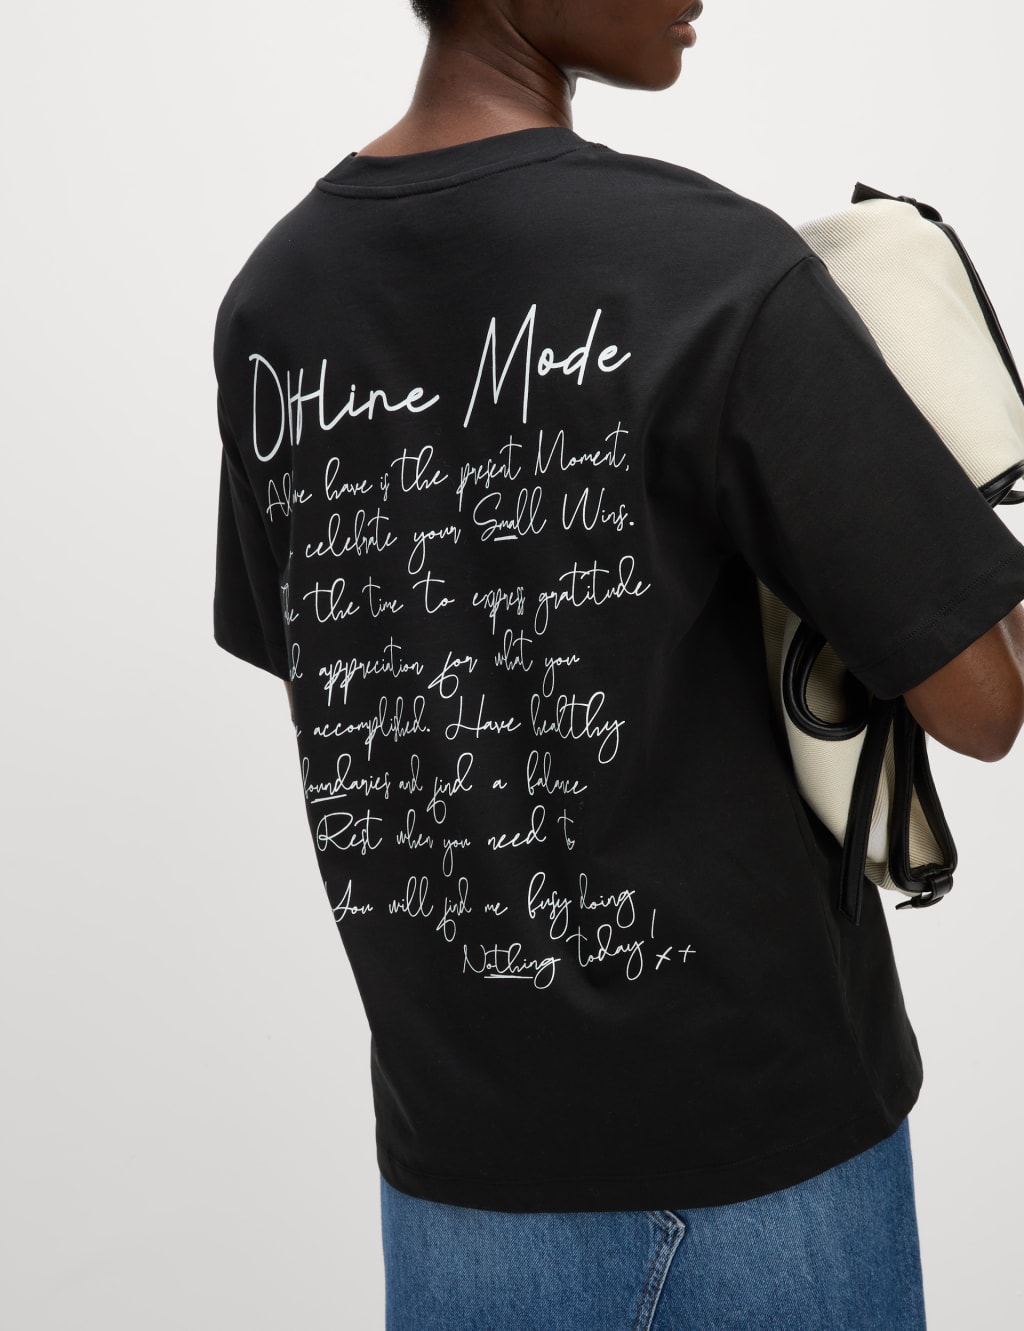 Offline Mode
All we have is the present Moment,
celebrate your Small Wins.
the time to express gratitude
appreciation for what you
accomplished. Have healthy
boundaries and find a balance
Rest when you need to
You will find me busy doing
Nothing today! x+